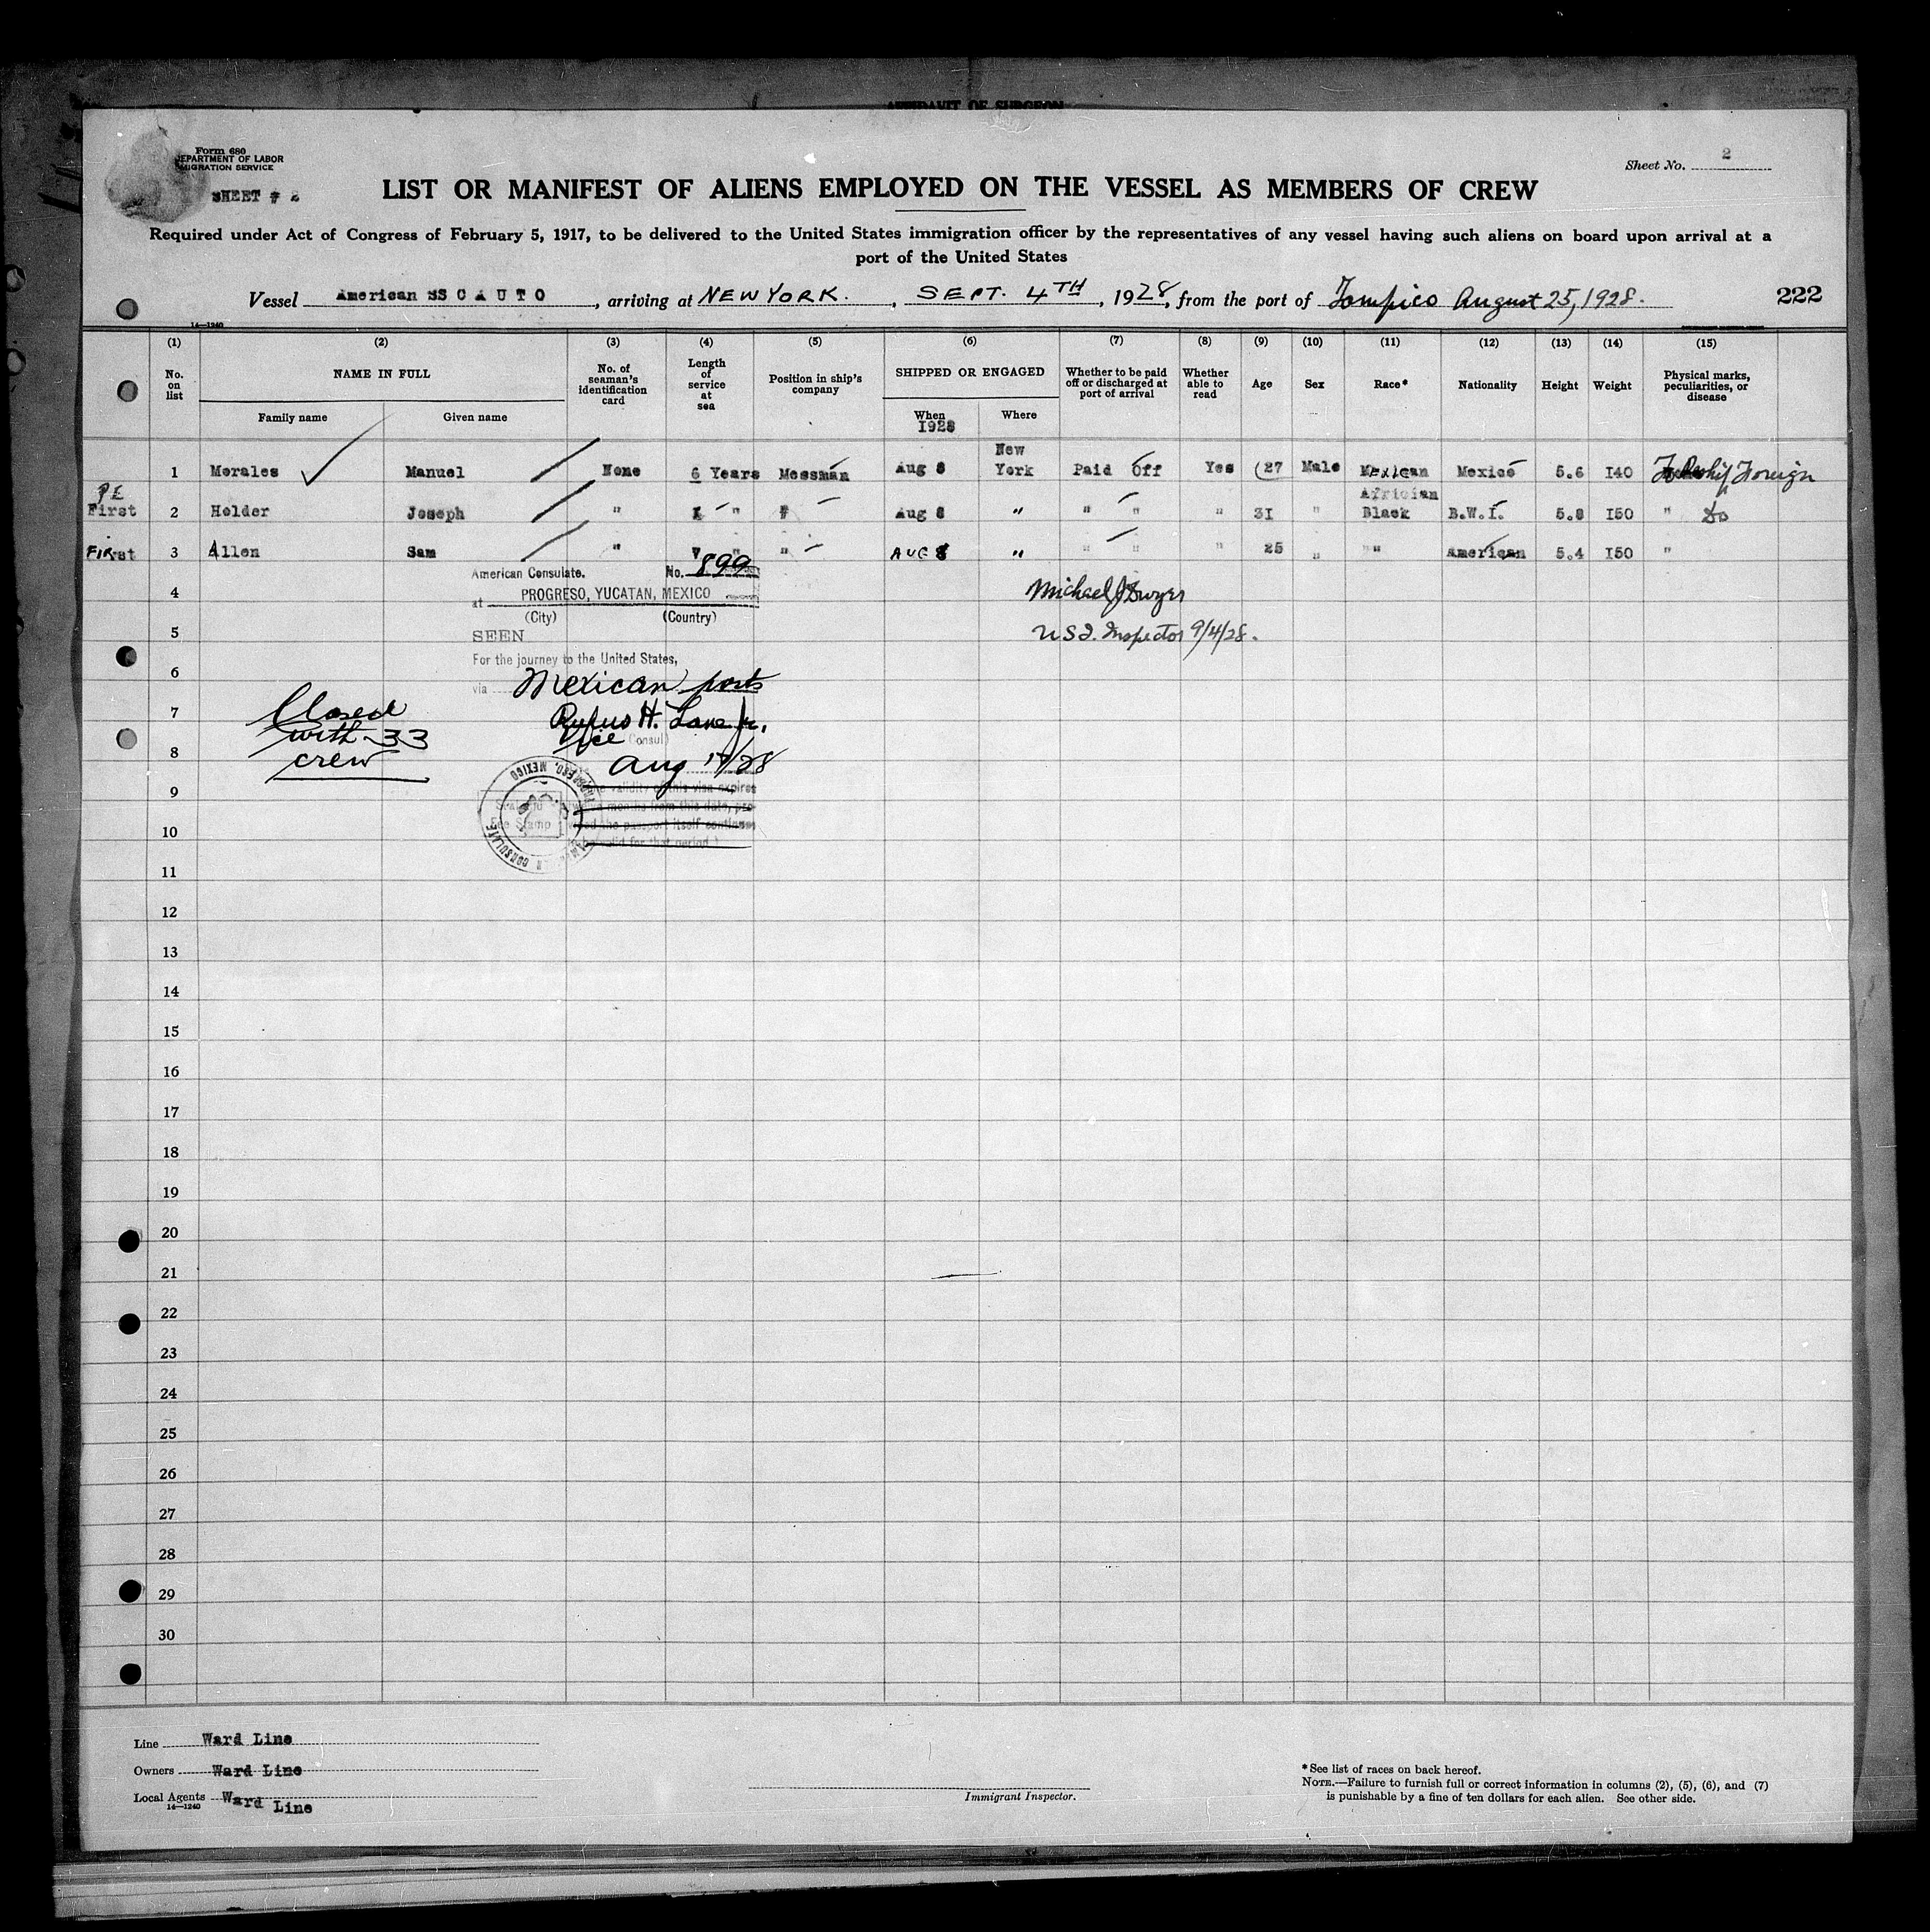 AFFIDAVIT OF SURGEON
Form 680
EPARTMENT OF LABOR
MIGRATION SERVICE
SHEET # 2
Sheet No. 2
LIST OR MANIFEST OF ALIENS EMPLOYED ON THE VESSEL AS MEMBERS OF CREW
Required under Act of Congress of February 5, 1917, to be delivered to the United States immigration officer by the representatives of any vessel having such aliens on board upon arrival at a
port of the United States
Vessel American SS CAUTO, arriving at NEW YORK., SEPT. 4TH, 1928, from the port of Tampico August 25, 1928.
222
14—1240
(1) (2) (3) (4) (5) (6) (7) (8) (9) (10) (11) (12) (13) (14) (15)
No. on list
NAME IN FULL
Family name
Given name
No. of seaman's identification card
Length of service at sea
Position in ship's company
SHIPPED OR ENGAGED
When 1928
Where
Whether to be paid off or discharged at port of arrival
Whether able to read
Age
Sex
Race*
Nationality
Height
Weight
Physical marks, peculiarities, or disease
1 Morales Manuel None 6 Years Messman Aug 8 New York Paid Off Yes 27 Male Mexican Mexico 5.6 140 Foreign
PE First 2 Holder Joseph " " Aug 8 " " " " 31 " African Black B.W.I. 5.8 150 " Do
First 3 Allen Sam " " " AUG 8 " " " " 25 " " " American 5.4 150 "
4
5
6
7
8
9
10
11
12
13
14
15
16
17
18
19
20
21
22
23
24
25
26
27
28
29
30
American Consulate. No. 899
at PROGRESO, YUCATAN, MEXICO
(City) (Country)
SEEN
For the journey to the United States,
via Mexican ports
Rufus H. Lane Jr.
Vice Consul)
Aug 17/28
The validity of this visa expires
months from this date, pro-
ed the passport itself continues
valid for that period.)
Seal and
Fee Stamp
AMERICAN CONSULATE
PROGRESO, MEXICO
Michael J Dwyer
U S I. Inspector 9/4/28.
Closed
with 33
crew
Line Ward Line
Owners Ward Line
Local Agents Ward Line
14—1240
Immigrant Inspector.
* See list of races on back hereof.
NOTE.—Failure to furnish full or correct information in columns (2), (5), (6), and (7)
is punishable by a fine of ten dollars for each alien. See other side.